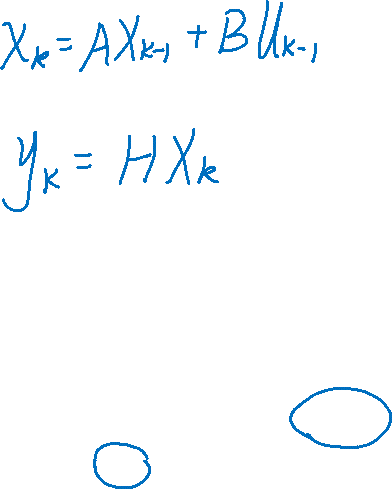 X_k = AX_{k-1} + BU_{k-1}
y_k = HX_k